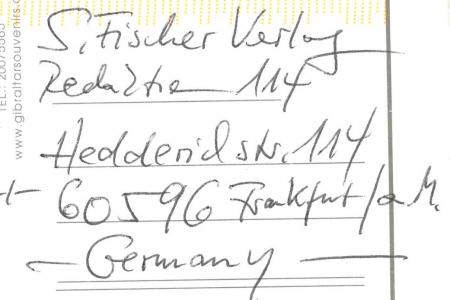 S. Fischer Verlag
Redaktion 114
Hedderichstr. 114
60596 Frankfurt/a M.
— Germany —
www.gibraltarsouvenirs.